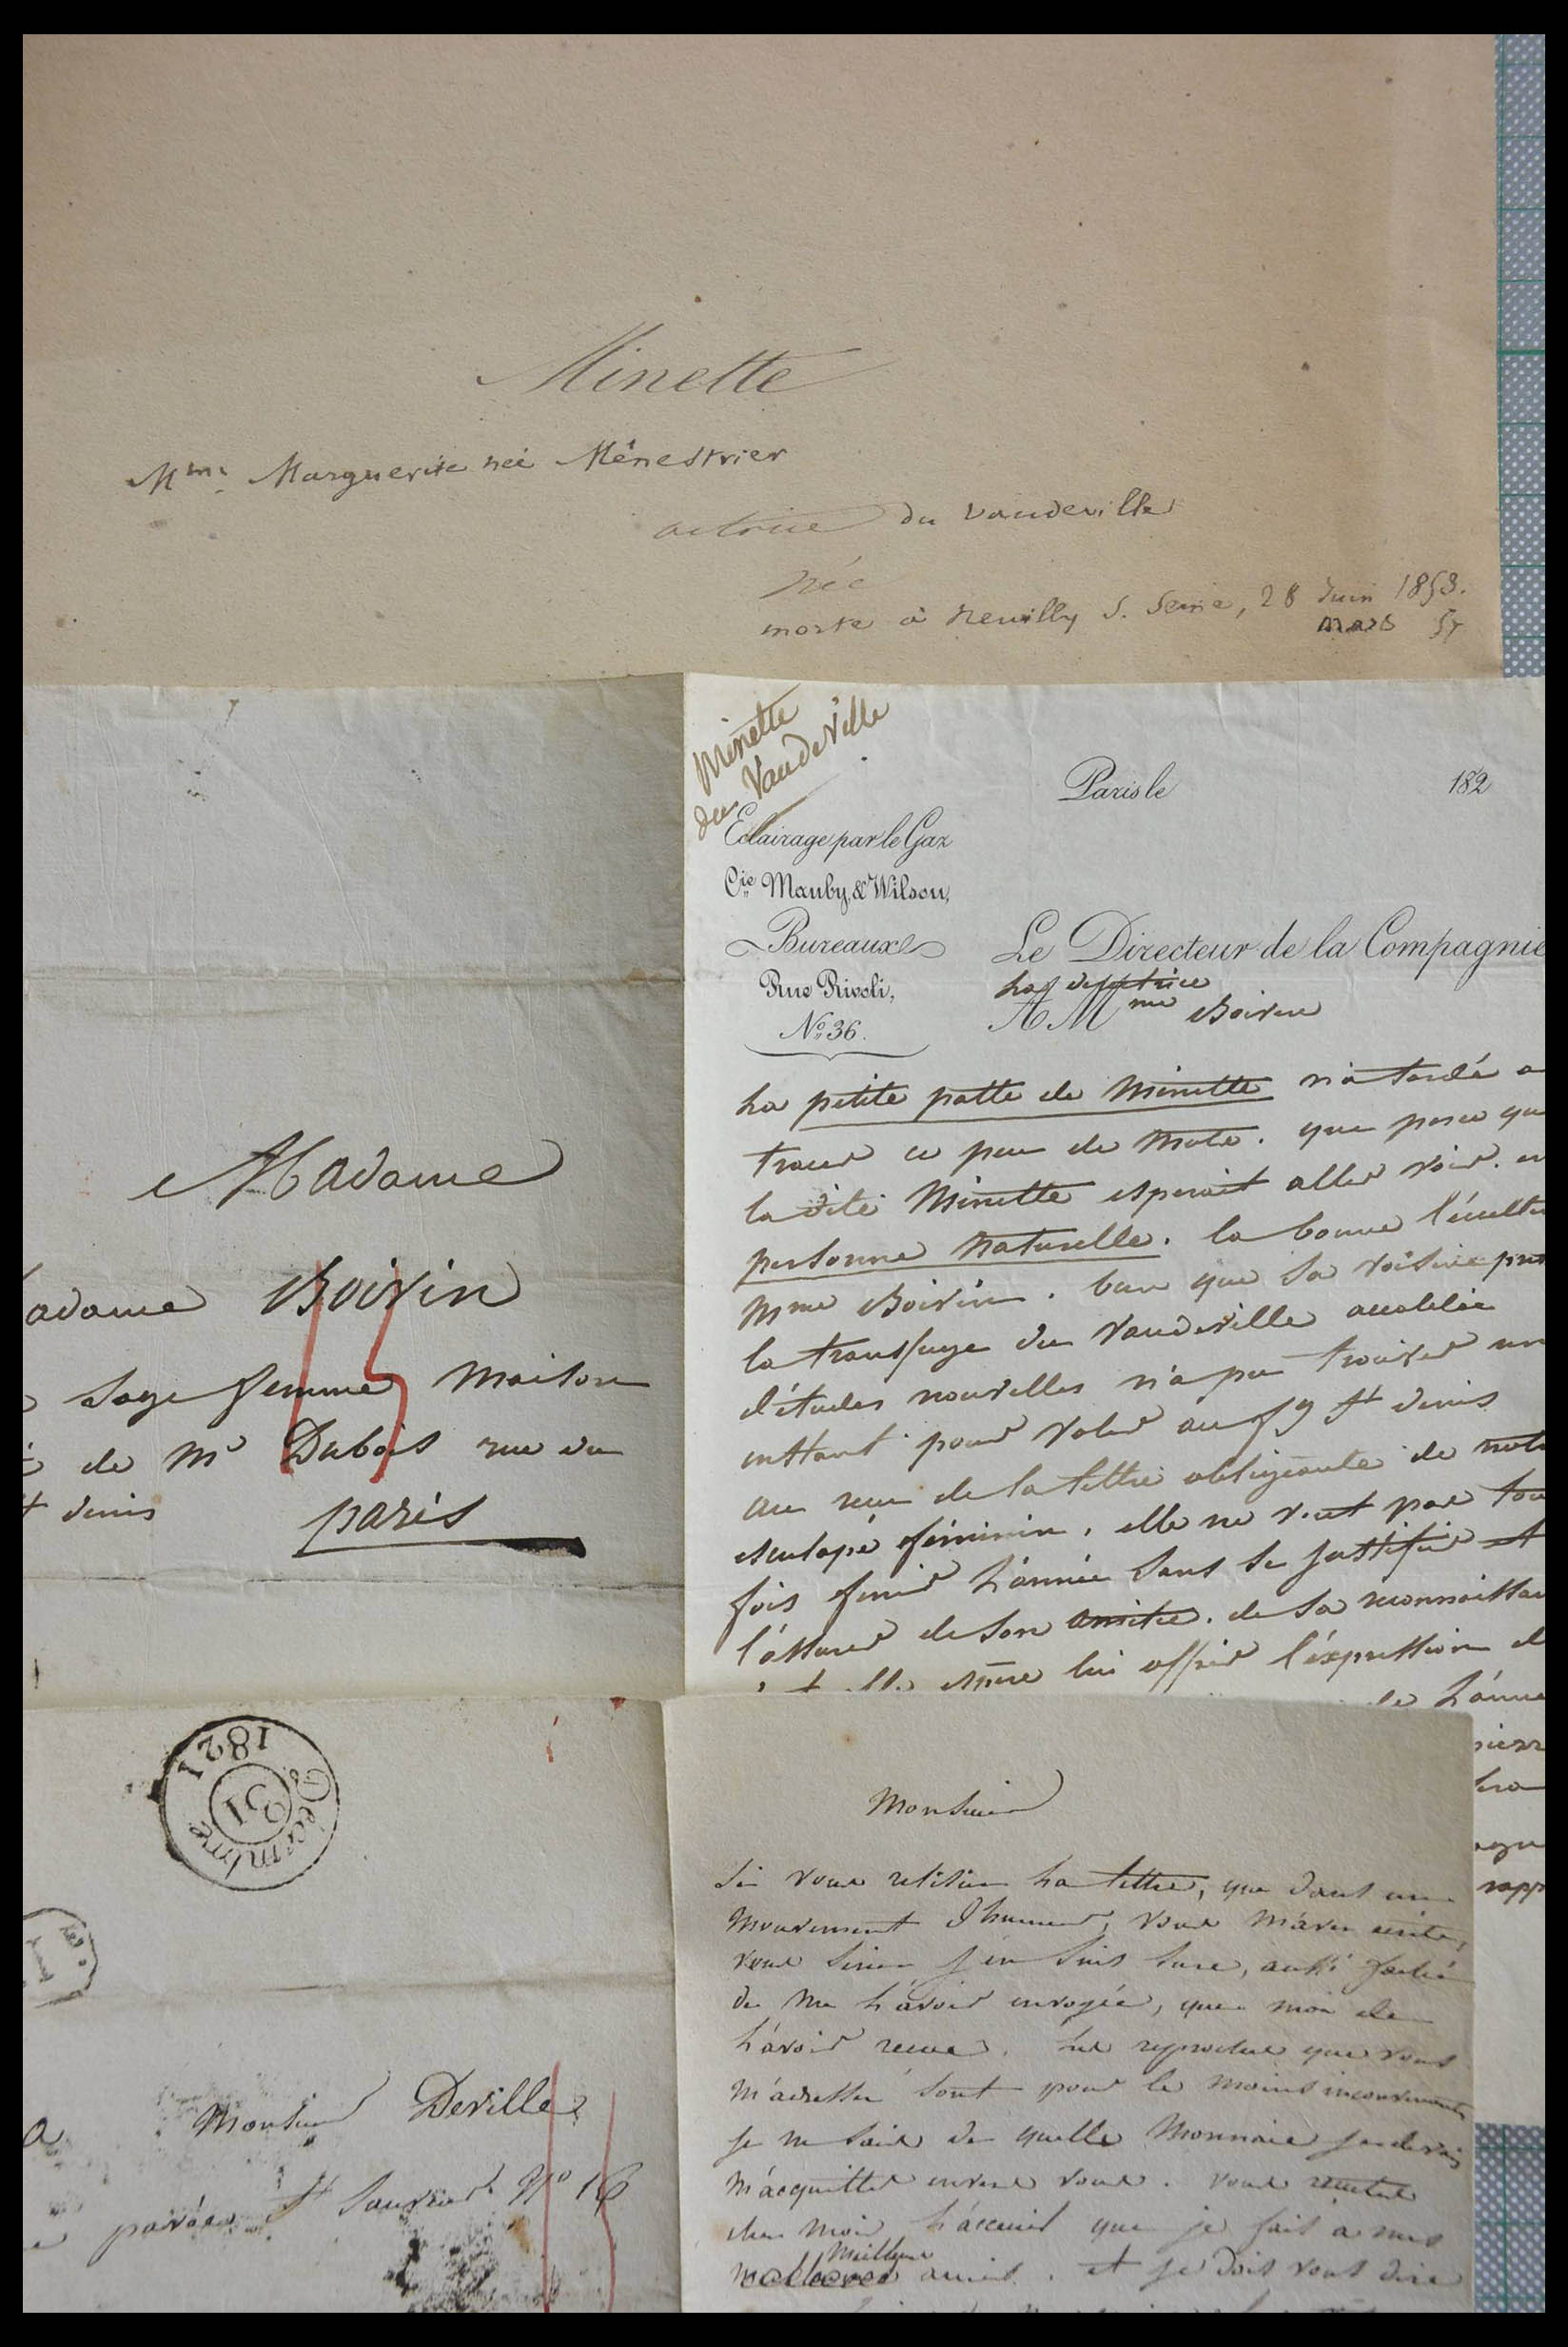 Minette
Mme Marguerite née Ménestrier
actrice du Vaudeville
née
morte à Neuilly S. Seine, 28 Juin 1853.
mars 57
Minette
du Vaudeville
Paris le 182
Eclairage par le Gaz
Cie Manby, & Wilson,
Bureaux
Rue Rivoli,
No. 36.
Le Directeur de la Compagnie
A Mme Boivin
La petite patte de Minette n'a tardé a
tracer ce peu de mots. que parce qu
la dite Minette esperait aller voir. en
personne naturelle. la bonne l'éxcelle
Mme Boivin. bien que sa voisine
la transfuge du Vaudeville accablée
d'études nouvelles n'a pu trouver un
instant pour voler au fg St denis
au reçu de la lettre obligeante de not
esculape féminin, elle ne veut pas tou
fois finir l'année sans se justifier et
l'assurer de son amitié. de sa reconnaissan
espère lui offrir l'éxpression d
de l'anné
rapp
Madame
adame Boivin
sage femme Maison
de Mr Dubois rue du
t denis
paris
1821
Décembre
31
Monsieur Deville
pavée St Sauveur No 16
Monsieur
Si vous relisiez la lettre, que dans un
mouvement d'humeur, vous m'avez écrite,
vous seriez j'en suis sure, aussi faché
de me l'avoir envoyée, que moi de
l'avoir reçue. Les reproches que vous
m'adressez sont pour le moins inconvenants
je ne sais de quelle monnaie je devrais
m'acquitter envers vous. vous
chez moi l'accueil que je fais a mes
meilleurs
amis. et je dois vous dire